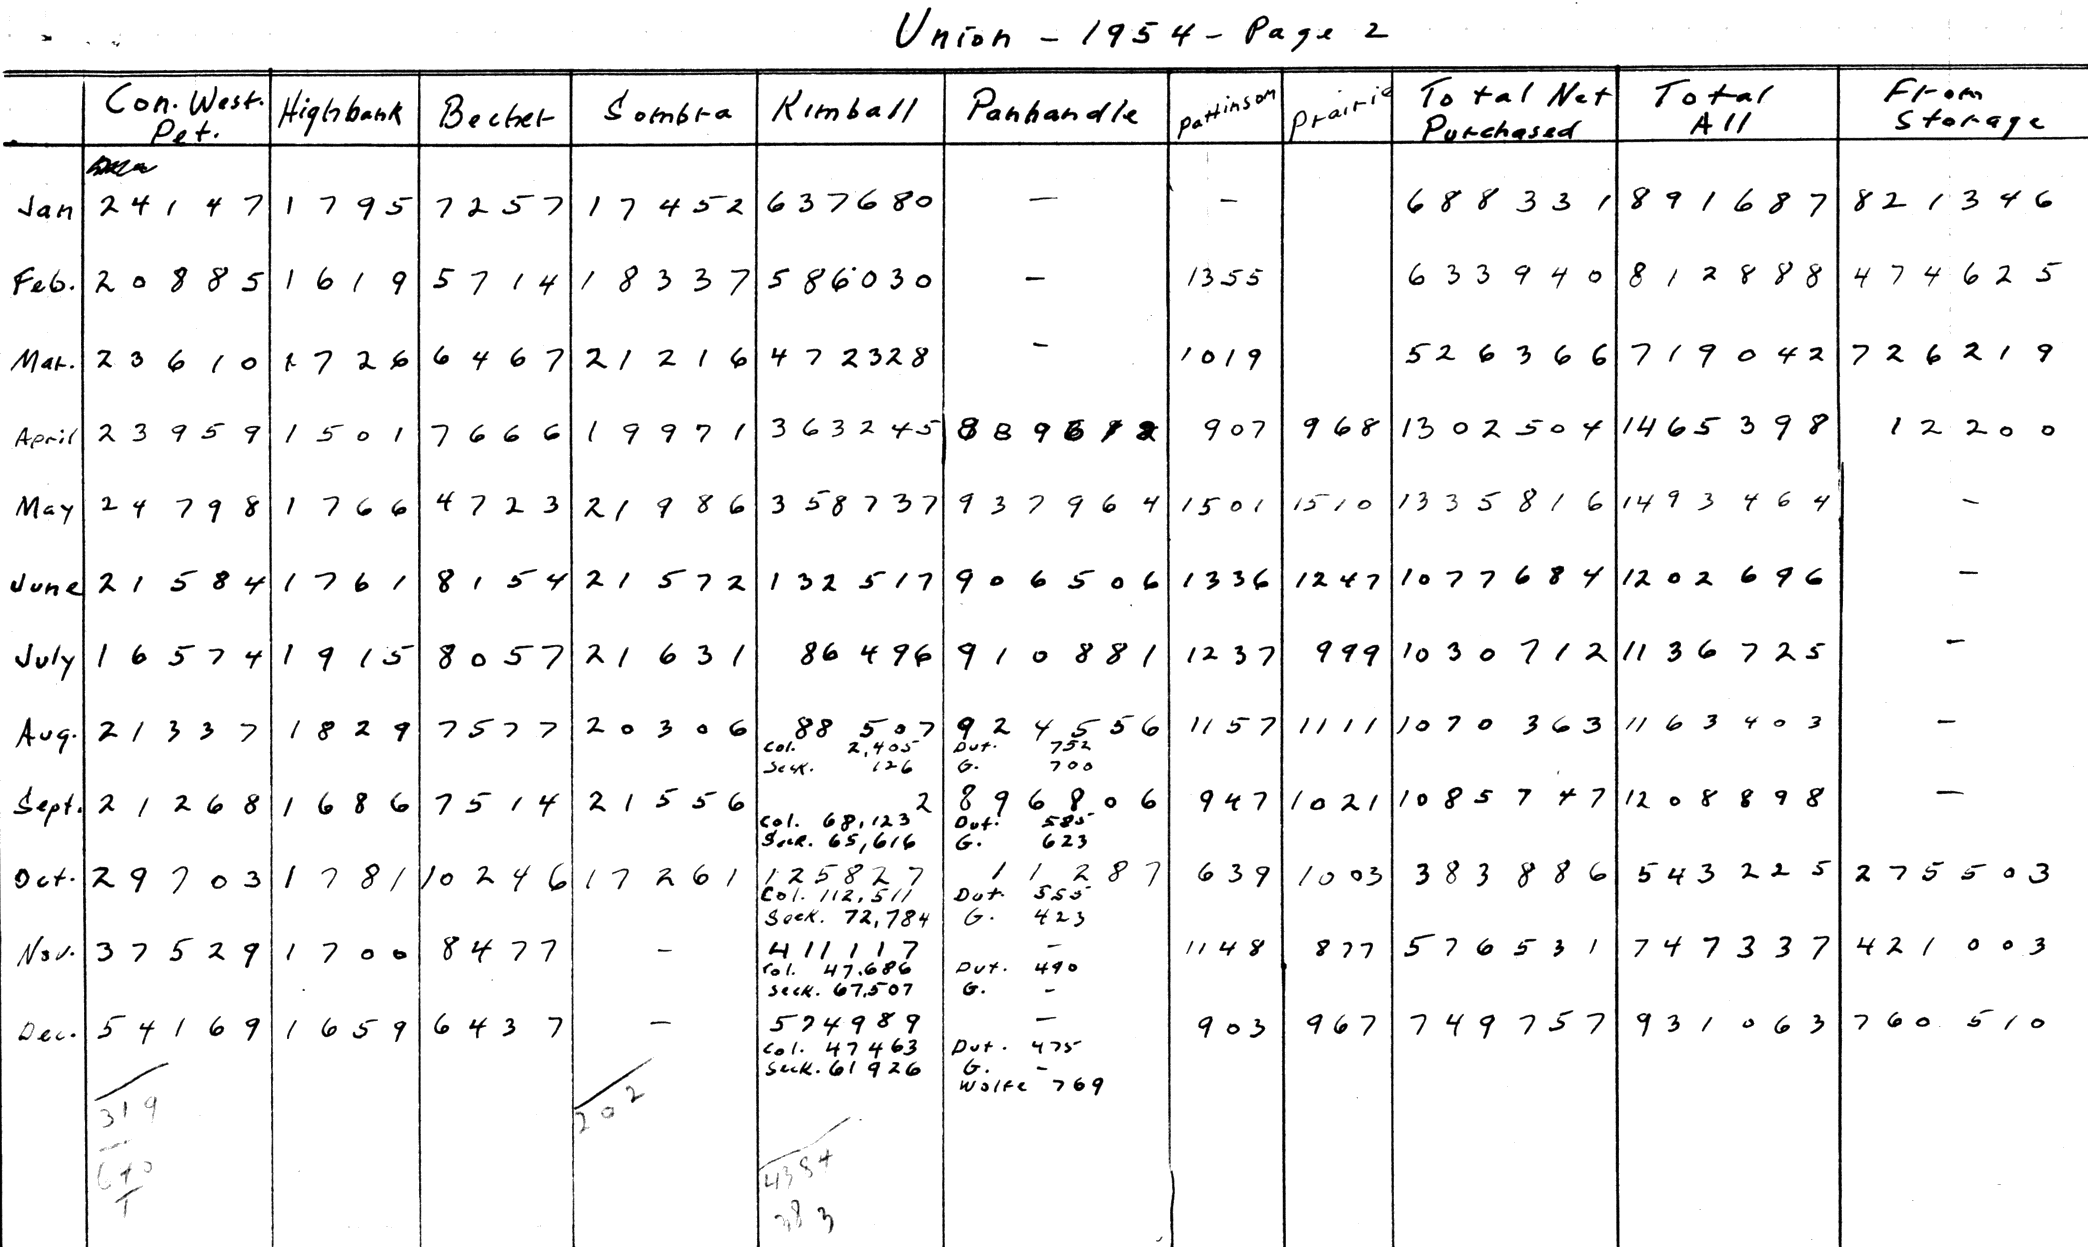 Union - 1954 - Page 2
Con. West. Pet. Highbank Becher Sombra Kimball Panhandle Pattinson Prairie Total Net Purchased Total All From Storage
Jan 24147 1795 7257 17452 637680 — — 688331 891687 821346
Feb. 20885 1619 5714 18337 586030 — 1355 633940 812888 474625
Mar. 23610 1726 6467 21216 472328 - 1019 526366 719042 726219
April 23959 1501 7666 19971 363245 907 968 1302504 1465398 12200
May 24798 1766 4723 21986 358737 937964 1501 1510 1335816 1493464 -
June 21584 1761 8154 21572 132517 906506 1336 1247 1077684 1202696 -
July 16574 1915 8057 21631 86496 910881 1237 999 1030712 1136725 -
Aug. 21337 1829 7577 20306 88507 924556 1157 1111 1070363 1163403 -
Col. 2,405 Dut. 752
Seck. 126 G. 700
Sept. 21268 1686 7514 21556 2 896806 947 1021 1085747 1208898 —
Col. 68,123 Dut. 585
Seck. 65,616 G. 623
Oct. 29703 1781 10246 17261 125827 11287 639 1003 383886 543225 275503
Col. 112,511 Dut. 555
Seck. 72,784 G. 423
Nov. 37529 1700 8477 - 411117 - 1148 877 576531 747337 421003
Col. 47.686 Dut. 490
Seck. 67,507 G. -
Dec. 54169 1659 6437 — 574989 — 903 967 749757 931063 760510
Col. 47463 Dut. 475
Seck. 61926 G. -
Wolfe 769
319 202
4384
383